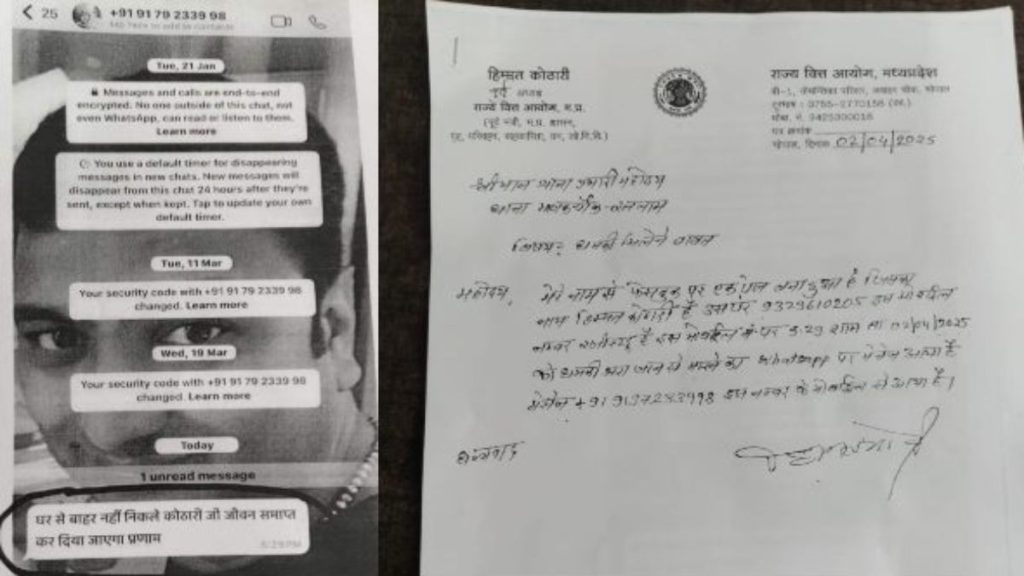 25
+91 91 79 2339 98
Tue, 21 Jan
Messages and calls are end-to-end
encrypted. No one outside of this chat, not
even WhatsApp, can read or listen to them.
Learn more
You use a default timer for disappearing
messages in new chats. New messages will
disappear from this chat 24 hours after they're
sent, except when kept. Tap to update your own
default timer.
Tue, 11 Mar
Your security code with +91 91 79 2339 98
changed. Learn more
Wed, 19 Mar
Your security code with +91 91 79 2339 98
changed. Learn more
Today
1 unread message
घर से बाहर नहीं निकले कोठारी जी जीवन समाप्त
कर दिया जाएगा प्रणाम
5:29 PM
हिम्मत कोठारी
पूर्व अध्यक्ष
राज्य वित्त आयोग, म.प्र.
(पूर्व मंत्री, म.प्र. शासन,
गृह, परिवहन, सहकारिता, वन, लो.नि.वि.)
राज्य वित्त आयोग, मध्यप्रदेश
दूरभाष : 0755-2770156 (का.)
पत्र क्रमांक
भोपाल, दिनांक 02/04/2025
श्रीमान थाना प्रभारी महोदय
थाना रतलाम
विषय: धमकी मिलने बाबत
महोदय, मेरे नाम से फेसबुक पर एक पेज बना हुआ है जिसका
नाम हिम्मत कोठारी है उस पर 9329610205 इस मोबाइल
नम्बर है इस मोबाइल नं पर 5.29 शाम ता 02/04/2025
को धमकी भरा जान से मारने का Whatsapp पर मेसेज आया है
इस नम्बर के मोबाइल से आया है।
धन्यवाद